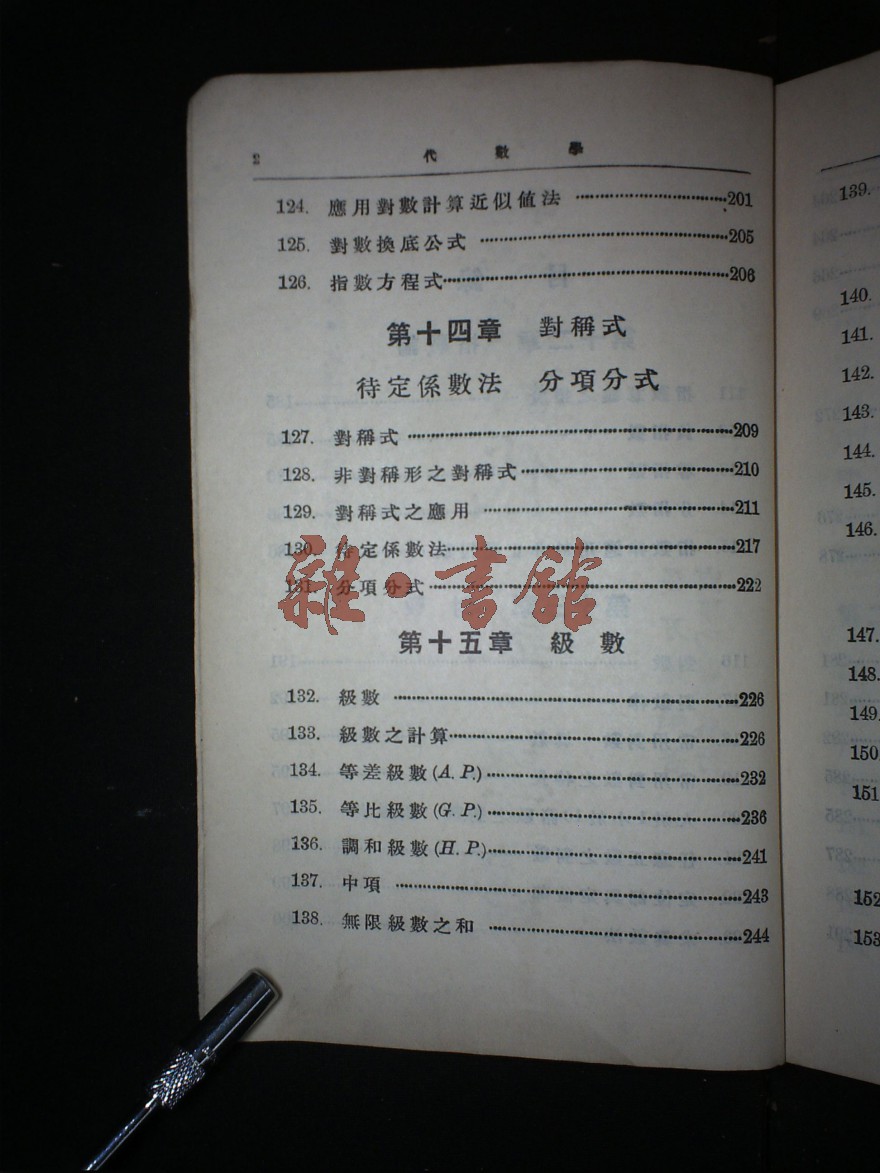 2 代數學
124. 應用對數計算近似値法 ………201
125. 對數換底公式 ………205
126. 指數方程式………206
第十四章 對稱式
待定係數法 分項分式
127. 對稱式 ………209
128. 非對稱形之對稱式………210
129. 對稱式之應用 ………211
130. 待定係數法………217
131. 分項分式………222
雜·書館
第十五章 級數
132. 級數 ………226
133. 級數之計算………226
134. 等差級數(A. P.)………232
135. 等比級數(G. P.)………236
136. 調和級數(H. P.)………241
137. 中項 ………243
138. 無限級數之和 ………244
139.
140.
141.
142.
143.
144.
145.
146.
147.
148.
149.
150
151
152
153